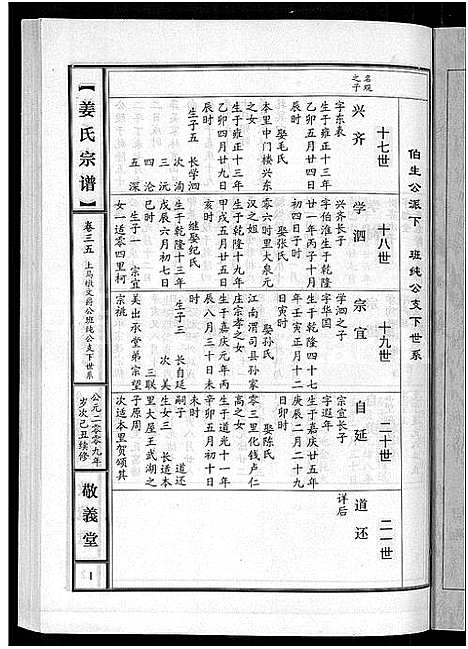 伯生公派下　班纯公支下世系
十七世
名观之子
兴齐
字东表
生于雍正十三年
乙卯五月廿四日
辰时　娶毛氏
本里中门楼兴东
生于雍正十三年
乙卯四月廿九日
辰时
生子五　长学泗
次　洵
三　沅
四　沦
五　深
十八世
学泗
兴齐长子
字伯淮生于乾隆
廿一年丙子十月
初四日子时
娶张氏
零六时里大泉元
汉之女
生于乾隆十九年
甲戌五月廿五日
亥时
继娶纪氏
生于乾隆十三年
戊辰六月初七日
巳时
生子一　宗宜
女一适零四里柯
十九世
宗宜
学泗之子
字华国
生于乾隆四十七
年壬寅正月十二
日寅时
娶孙氏
江南渭司县孙家
庄宗孝之女
生于嘉庆元年丙
辰八月三十日
未时
生子三　长自延
次　美
三　联
美出承堂弟宗望
宗祧
二十世
自延
宗宜长子
字遐年
生于嘉庆廿五年
庚辰二月二十九
日卯时
娶陈氏
零三里化钱卢仁
高之女
生于道光十一年
辛卯五月初十日
嗣子　道还
生女三　长适本
里大屋王武湖之
子原周
次适本里贺颂其
二一世
道还
详后
【姜氏宗谱】
卷三五
上马墩文爵公班纯公支下世系
公元二〇〇九年
岁次己丑续修
敬義堂
1